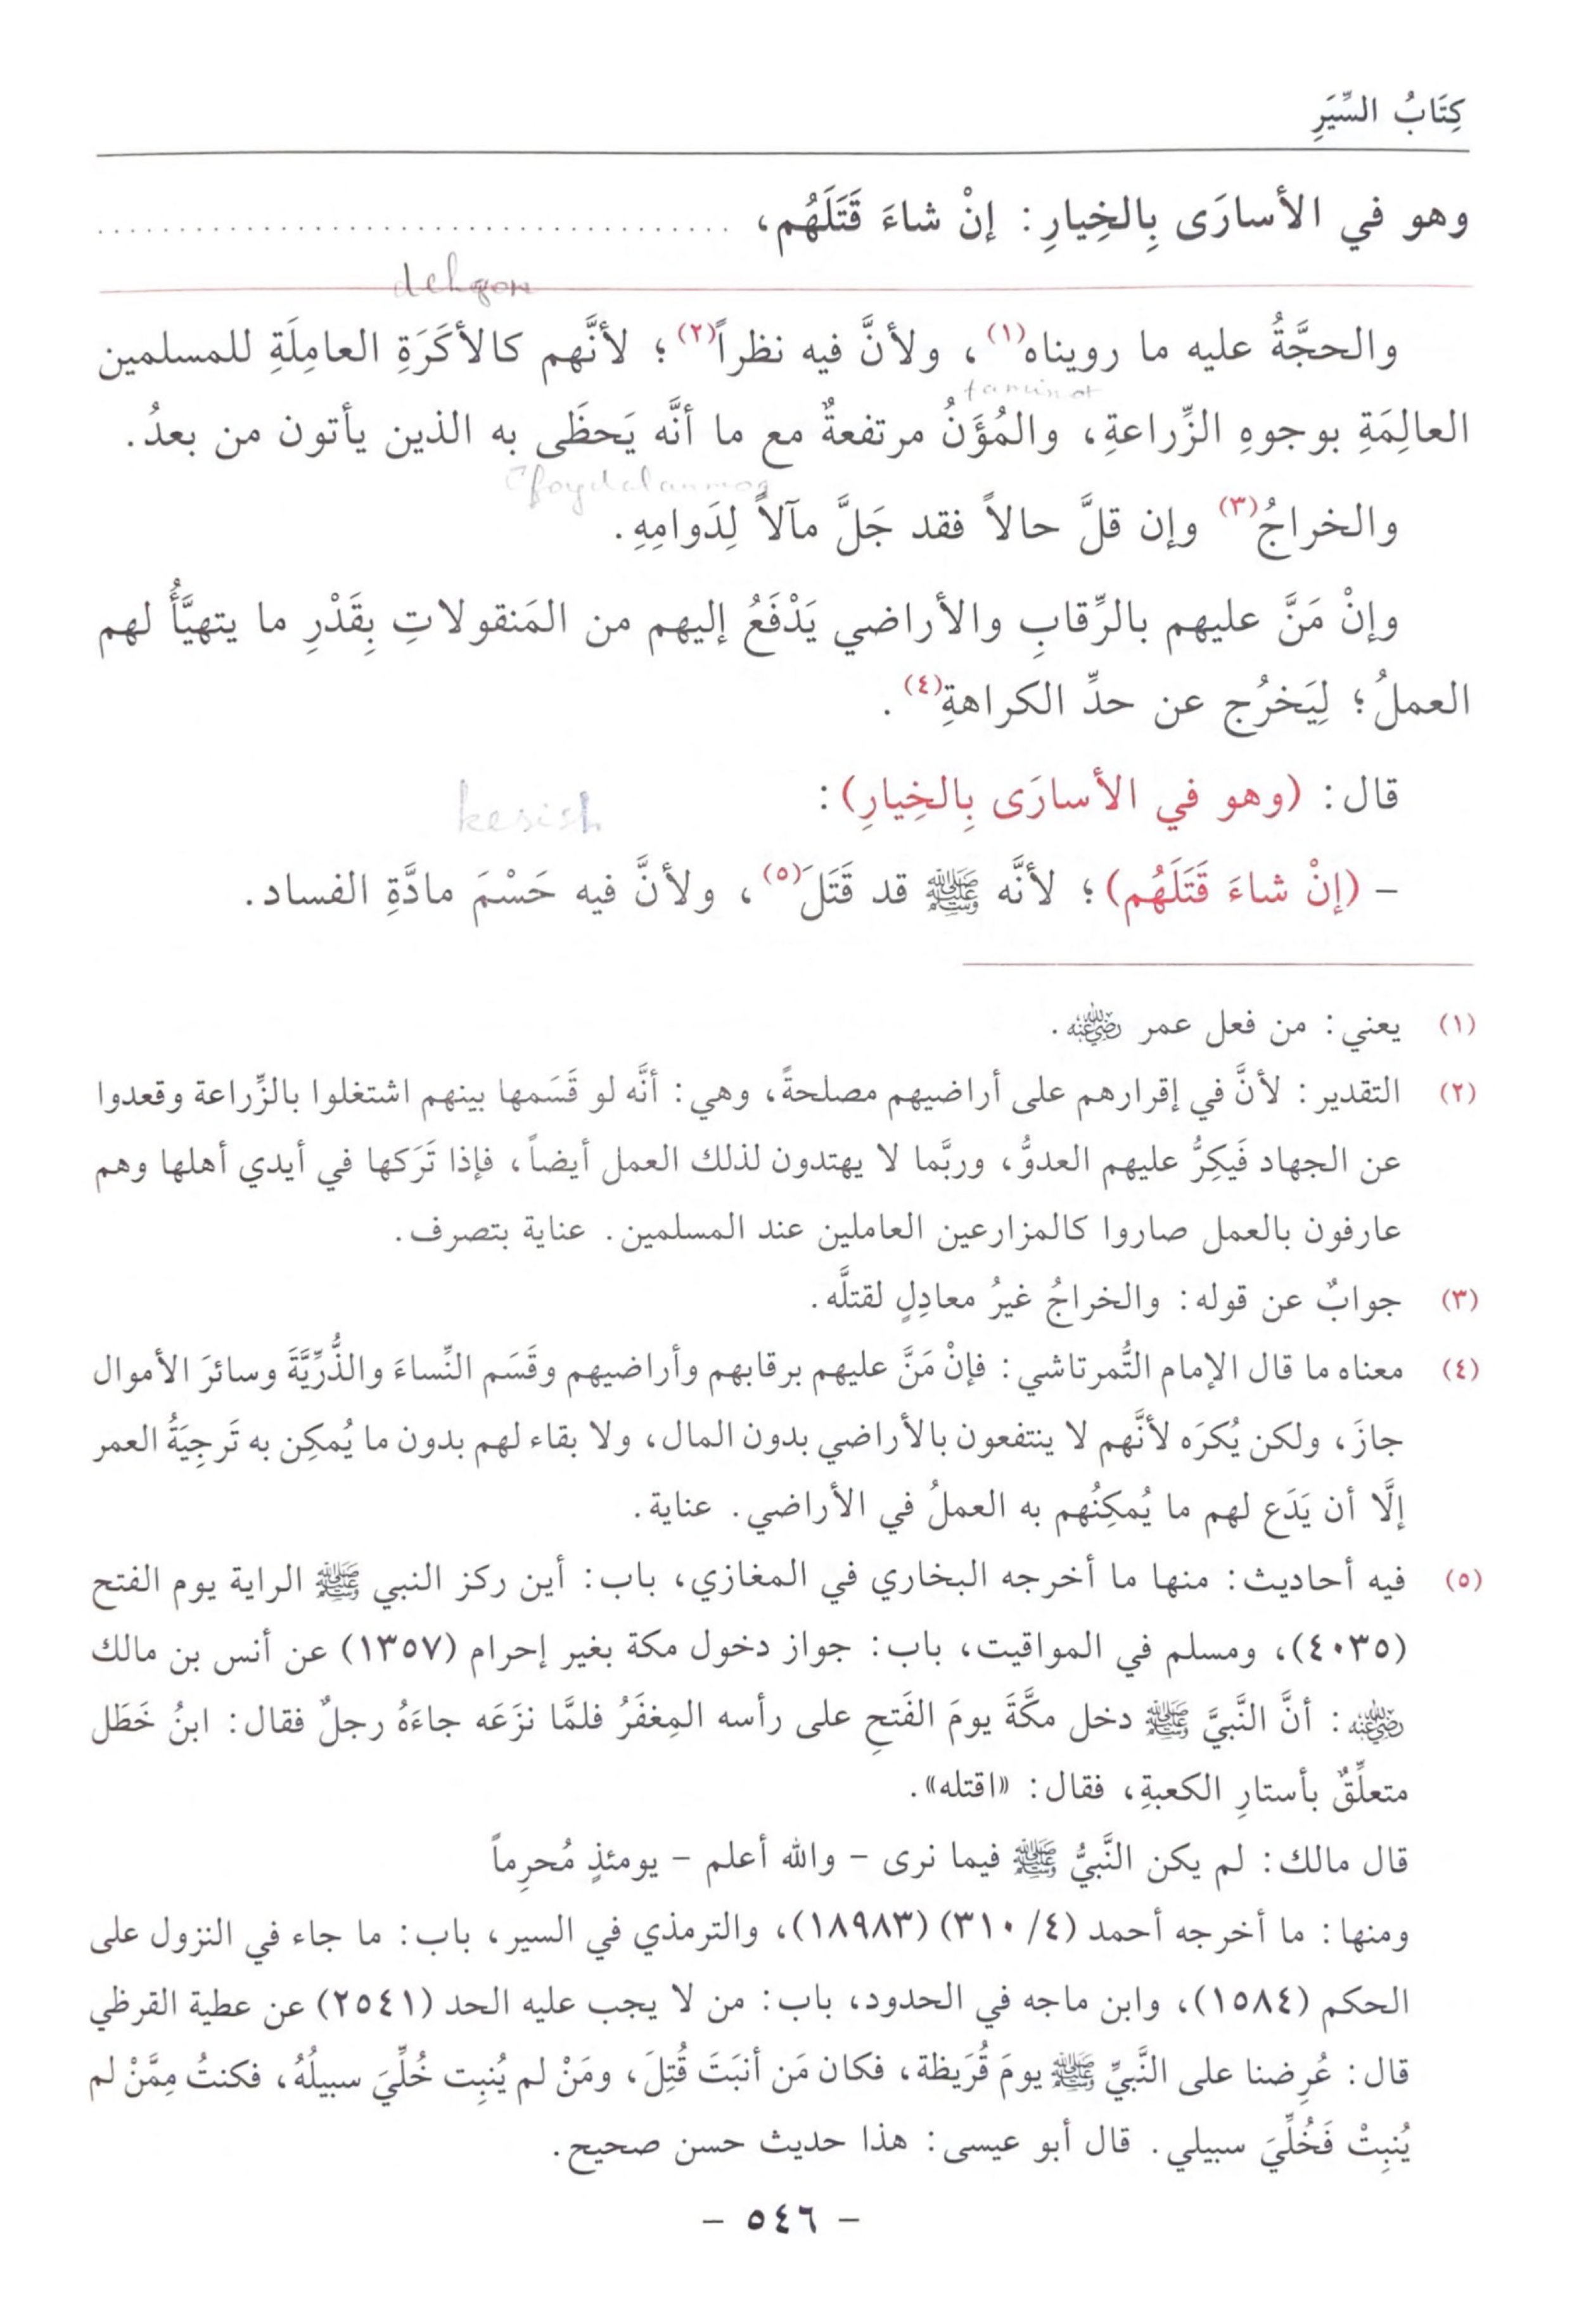 كِتَابُ السِّيَرِ
وهو في الأسارَى بِالخِيارِ: إنْ شاءَ قَتَلَهُم، ......................................
dehqon
والحجَّةُ عليه ما رويناه(١)، ولأنَّ فيه نظراً(٢)؛ لأنَّهم كالأكَرَةِ العامِلَةِ للمسلمين
taminot
العالِمَةِ بوجوهِ الزِّراعةِ، والمُؤَنُ مرتفعةٌ مع ما أنَّه يَحظَى به الذين يأتون من بعدُ.
foydalanmoq
والخراجُ(٣) وإن قلَّ حالاً فقد جَلَّ مآلاً لِدَوامِهِ.
وإنْ مَنَّ عليهم بالرِّقابِ والأراضي يَدْفَعُ إليهم من المَنقولاتِ بِقَدْرِ ما يتهيَّأُ لهم
العملُ؛ لِيَخرُج عن حدِّ الكراهةِ(٤).
قال: (وهو في الأسارَى بِالخِيارِ):
kesish
– (إنْ شاءَ قَتَلَهُم)؛ لأنَّه ﷺ قد قَتَلَ(٥)، ولأنَّ فيه حَسْمَ مادَّةِ الفساد.
(١) يعني: من فعل عمر رضي الله عنه.
(٢) التقدير: لأنَّ في إقرارهم على أراضيهم مصلحةً، وهي: أنَّه لو قَسَمها بينهم اشتغلوا بالزِّراعة وقعدوا
عن الجهاد فَيَكِرُّ عليهم العدوُّ، وربَّما لا يهتدون لذلك العمل أيضاً، فإذا تَرَكها في أيدي أهلها وهم
عارفون بالعمل صاروا كالمزارعين العاملين عند المسلمين. عناية بتصرف.
(٣) جوابٌ عن قوله: والخراجُ غيرُ معادِلٍ لقتلَّه.
(٤) معناه ما قال الإمام التُّمرتاشي: فإنْ مَنَّ عليهم برقابهم وأراضيهم وقَسَم النِّساءَ والذُّرِّيَّةَ وسائرَ الأموال
جازَ، ولكن يُكرَه لأنَّهم لا ينتفعون بالأراضي بدون المال، ولا بقاء لهم بدون ما يُمكِن به تَرجِيَةُ العمر
إلَّا أن يَدَع لهم ما يُمكِنُهم به العملُ في الأراضي. عناية.
(٥) فيه أحاديث: منها ما أخرجه البخاري في المغازي، باب: أين ركز النبي ﷺ الراية يوم الفتح
(٤٠٣٥)، ومسلم في المواقيت، باب: جواز دخول مكة بغير إحرام (١٣٥٧) عن أنس بن مالك
رضي الله عنه: أنَّ النَّبيَّ ﷺ دخل مكَّةَ يومَ الفَتحِ على رأسه المِغفَرُ فلمَّا نزَعَه جاءَهُ رجلٌ فقال: ابنُ خَطَل
متعلِّقٌ بأستارِ الكعبةِ، فقال: «اقتله».
قال مالك: لم يكن النَّبيُّ ﷺ فيما نرى – والله أعلم – يومئذٍ مُحرِماً
ومنها: ما أخرجه أحمد (٤/ ٣١٠) (١٨٩٨٣)، والترمذي في السير، باب: ما جاء في النزول على
الحكم (١٥٨٤)، وابن ماجه في الحدود، باب: من لا يجب عليه الحد (٢٥٤١) عن عطية القرظي
قال: عُرِضنا على النَّبيِّ ﷺ يومَ قُرَيظة، فكان مَن أنبَتَ قُتِلَ، ومَنْ لم يُنبِت خُلِّيَ سبيلُهُ، فكنتُ مِمَّنْ لم
يُنبِتْ فَخُلِّيَ سبيلي. قال أبو عيسى: هذا حديث حسن صحيح.
– ٥٤٦ –